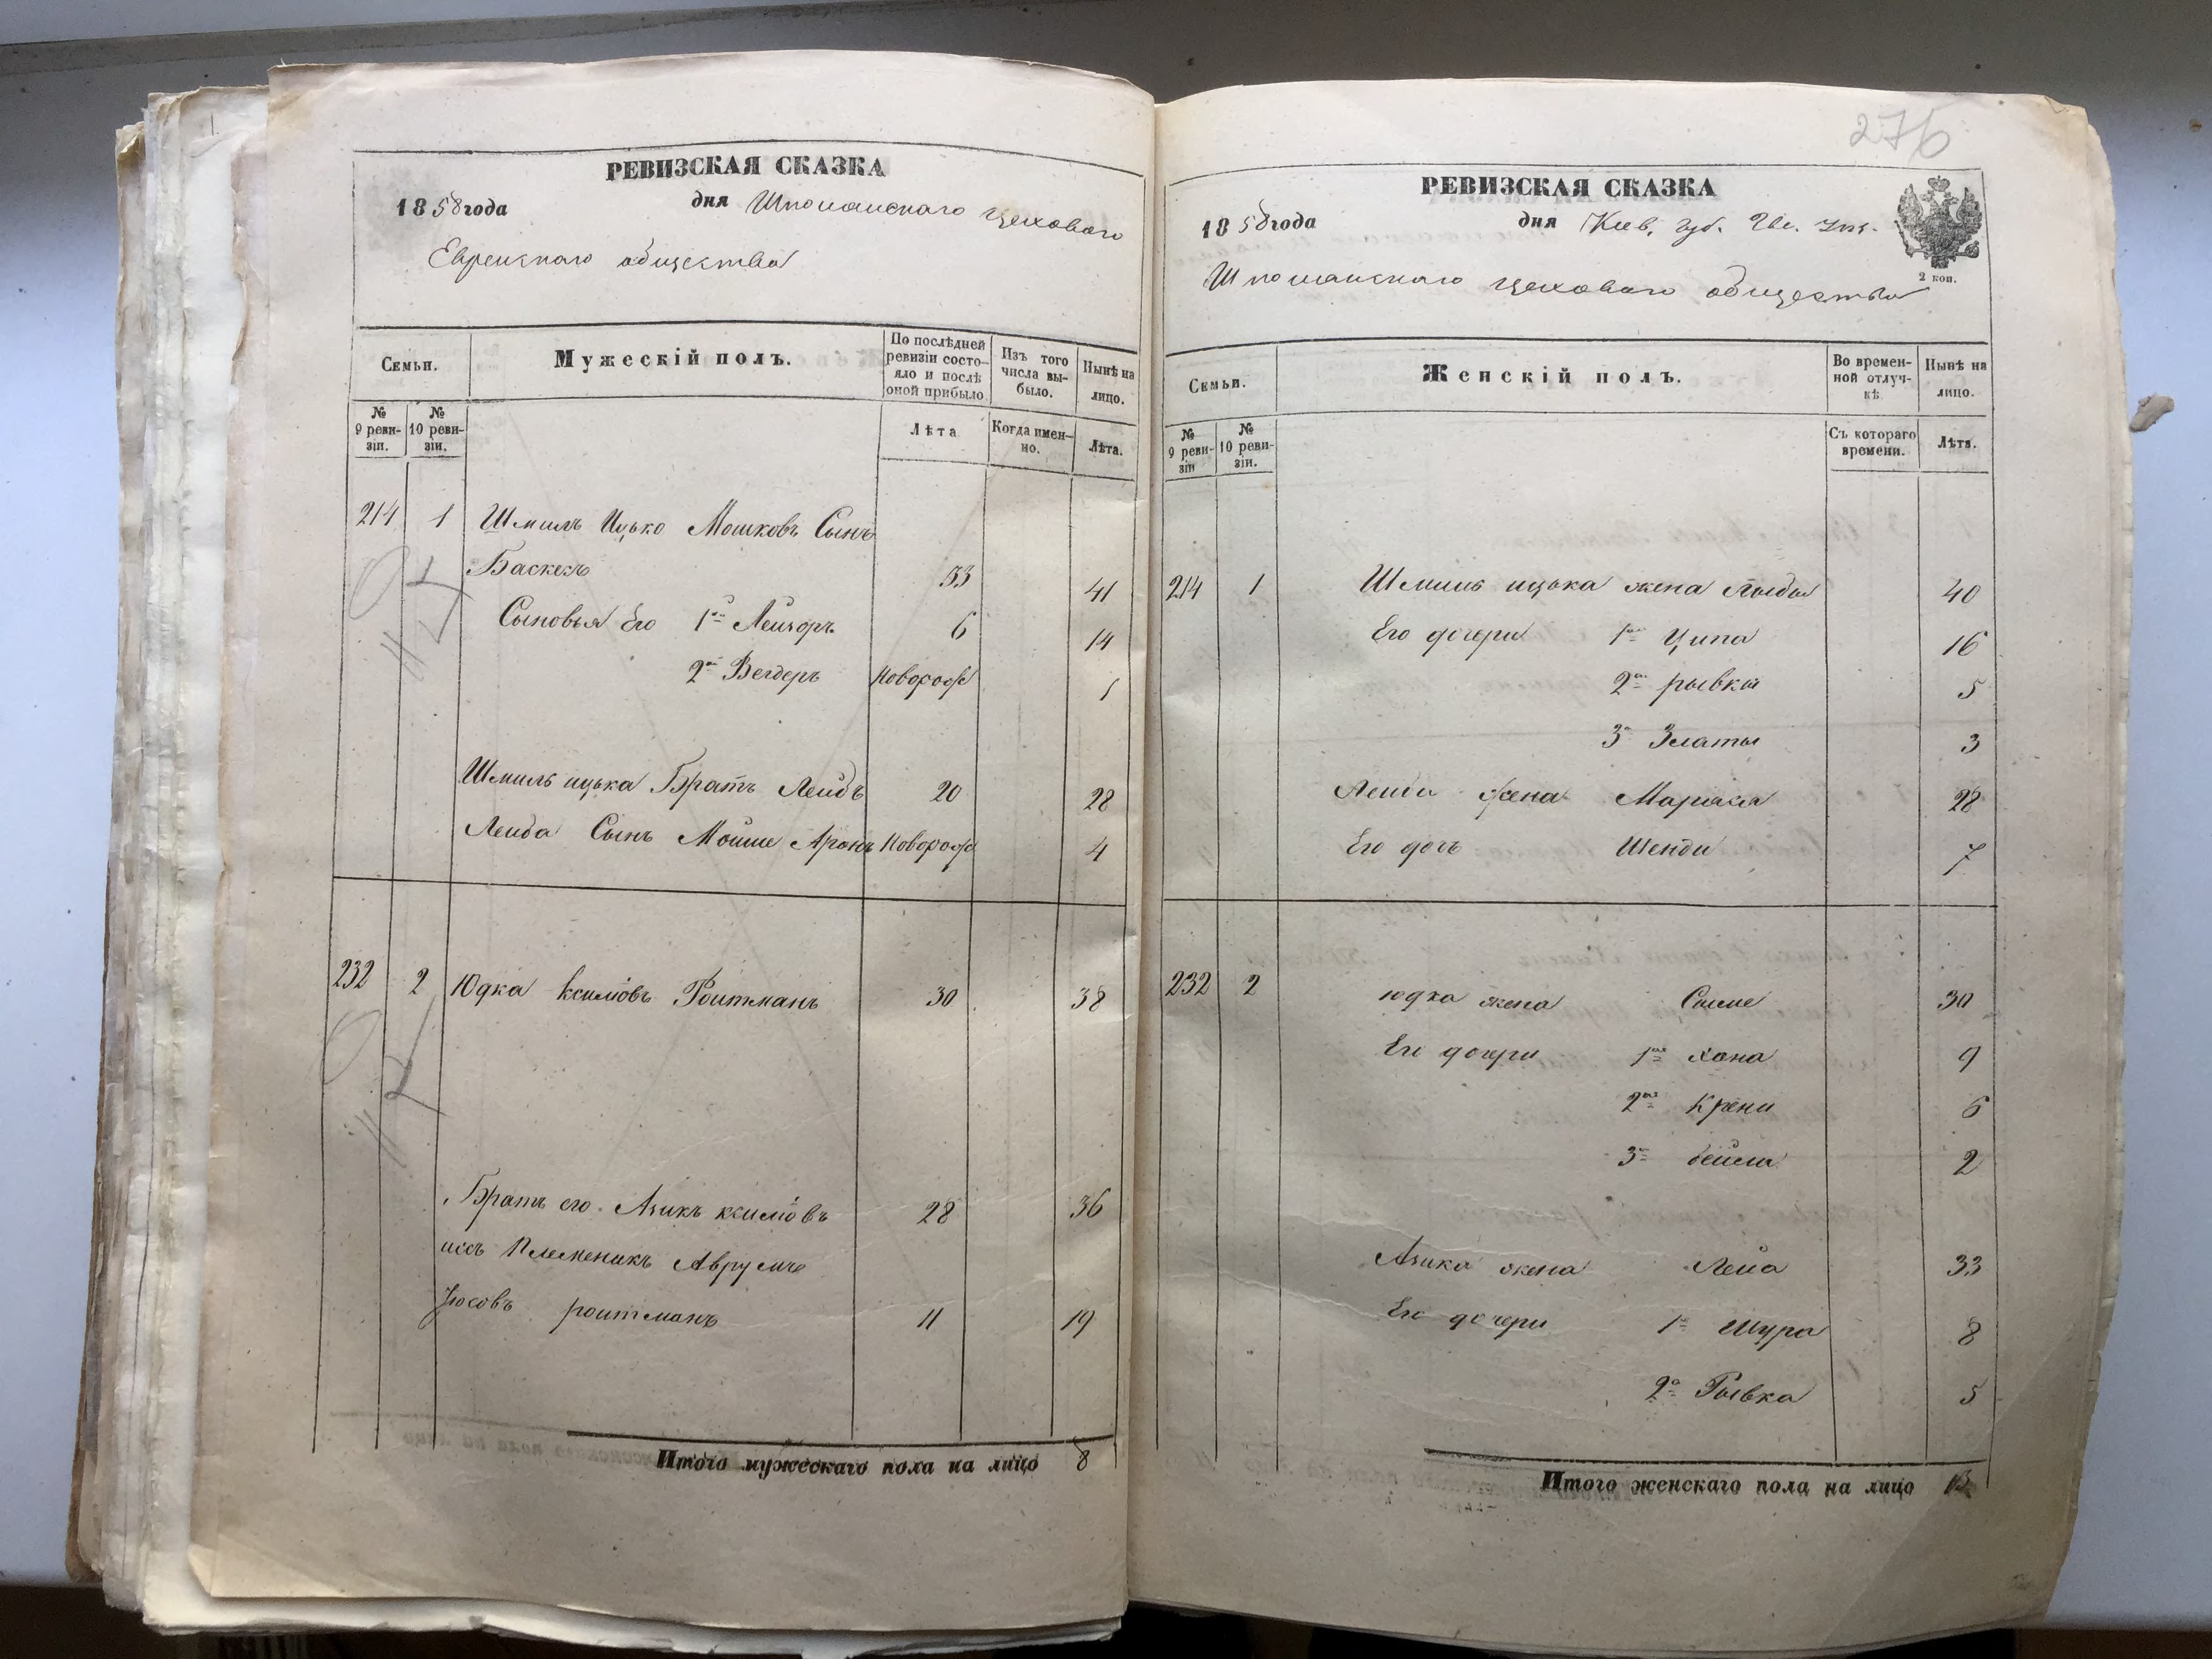 РЕВИЗСКАЯ СКАЗКА
1858 года дня Шполянскаго цеховаго
Еврейскаго общества
Семьи.
Мужескiй полъ.
По послѣдней ревизiи состояло и послѣ оной прибыло
Изъ того числа выбыло.
Нынѣ на лицо.
№ 9 ревизiи.
№ 10 ревизiи.
Лѣта
Когда именно.
Лѣта.
214 1 Шмиль Ицько Мошковъ Сынъ
Баскекъ 33 41
Сыновья Его 1й Лейзоръ 6 14
2й Вегдеръ Новорож 1
Шмиль ицька Братъ Лейбъ 20 28
Лейба Сынъ Мойше Аронъ Новорож 4
232 2 Юдка Ройтманъ 30 38
Братъ его Азикъ 28 36
ихъ Племеникъ Аврумъ
Юсовъ ройтманъ 11 19
Итого мужескаго пола на лицо 8
276
РЕВИЗСКАЯ СКАЗКА
1858 года дня Кiев. губ. Зве. Уѣз.
Шполянскаго цеховаго общества
2 коп.
Семьи.
Женскiй полъ.
Во временной отлучкѣ
Нынѣ на лицо.
№ 9 ревизiи
№ 10 ревизiи.
Съ котораго времени.
Лѣта.
214 1 Шмиль ицька жена 40
Его дочери 1я Ципа 16
2я рывка 5
3я Златы 3
Лейби жена Марьяся 28
Его дочь Шейди 7
232 2 юдка жена Сыме 30
Его дочери 1я хана 9
2я Крени 6
3я бейла 2
Азика жена Лейа 33
Его дочери 1я Шура 8
2я Рывка 5
Итого женскаго пола на лицо 13